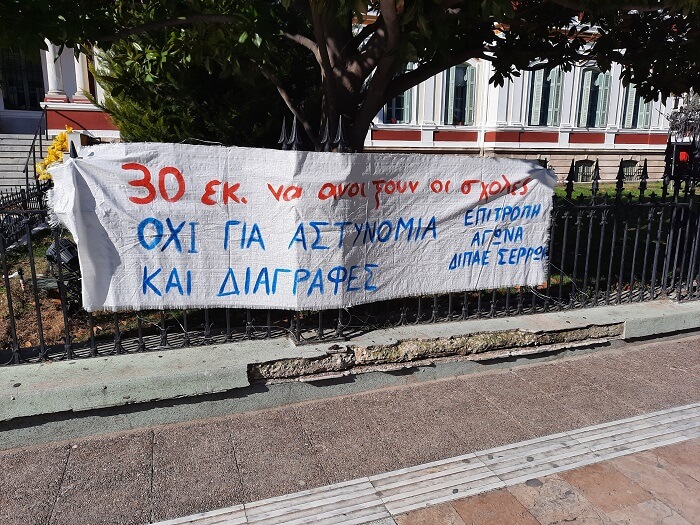 30 εκ. να ανοιξουν οι σχολες
ΟΧΙ ΓΙΑ ΑΣΤΥΝΟΜΙΑ
ΚΑΙ ΔΙΑΓΡΑΦΕΣ
ΕΠΙΤΡΟΠΗ
ΑΓΩΝΑ
ΔΙΠΑΕ ΣΕΡΡΩΝ